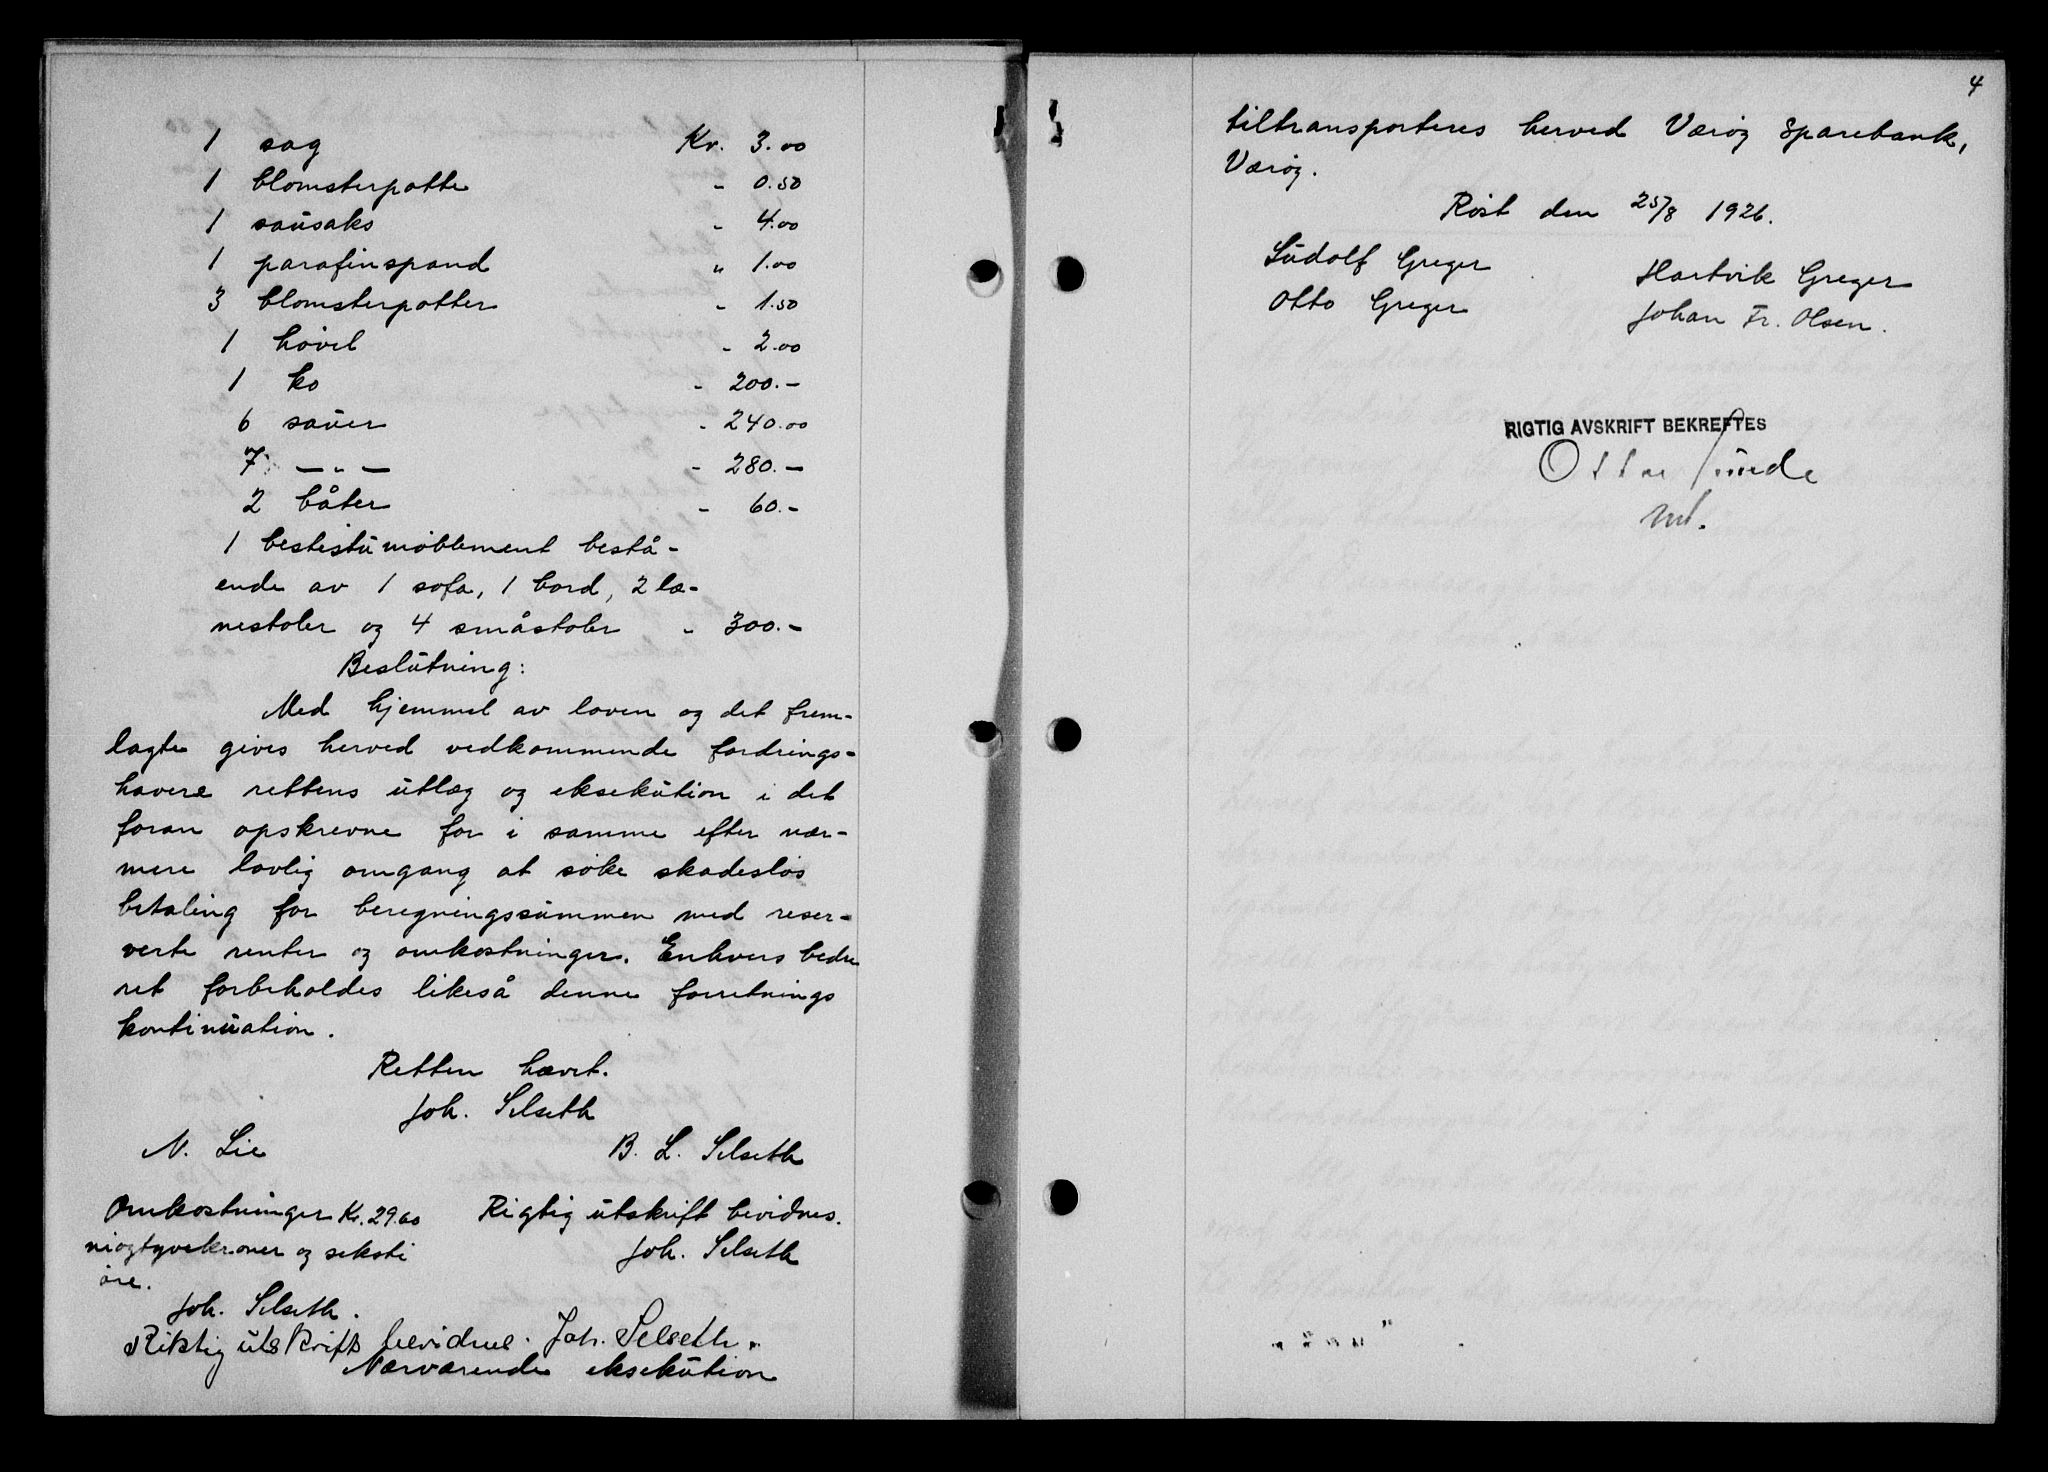 1 sag Kr. 3.00
1 blomsterpotte - 0.50
1 sausaks - 4.00
1 parafinspand " 1.00
3 blomsterpotter - 1.50
1 hövel - 2.00
1 ko - 200.-
6 sauer - 240.00
7 — " — - 280.-
2 båter - 60.-
1 bestestumöblement bestå-
ende av 1 sofa, 1 bord, 2 læ-
nestoler og 4 småstoler - 300.-
Beslutning:
Med hjemmel av loven og det frem-
lagte gives herved vedkommende fordrings-
havere rettens utlæg og eksekution i det
foran opskrevne for i samme efter nær-
mere lovlig omgang at söke skadeslös
betaling for beregningssummen med reser-
verte renter og omkostninger. Enhvers bedre
ret forbeholdes likeså denne forretnings
kontinuation.
Retten hævet.
Joh. Selseth
N. Lie B. L. Selseth
Omkostninger Kr. 29.60 Rigtig utskrift bevidnes.
niogtyvekroner og seksti Joh. Selseth
öre.
Joh. Selseth.
Riktig utskrift bevidnes. Joh. Selseth.
Nærværende eksekution
4
tiltransporteres herved Væröy Sparebank,
Væröy.
Röst den 25/8 1926.
Ludolf Greger Hartvik Greger
Otto Greger Johan Fr. Olsen.
RIGTIG AVSKRIFT BEKREFTES